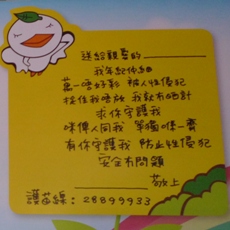 送給親愛的
我年紀你細
萬一唔好彩 被人性侵犯
捉住我唔放 我敵冇晒計
求你守護我
咪俾人同我 單獨喺一齊
有你守護我 防止性侵犯
安全冇問題
敬上
護苗線：28899933